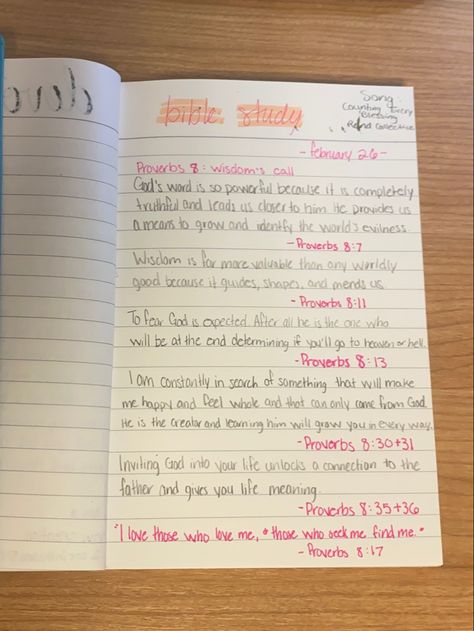 bible study
Song:
Counting Every
Blessing
Rend Collective
- february 26 -
Proverbs 8: Wisdom's call
God's word is so powerful because it is completely
truthful and leads us closer to him. He provides us
a means to grow and identify the world's evilness.
- Proverbs 8:7
Wisdom is far more valuable than any worldly
good because it guides, shapes, and mends us.
- Proverbs 8:11
To fear God is expected. After all he is the one who
will be at the end determining if you'll go to heaven or hell.
- Proverbs 8:13
I am constantly in search of something that will make
me happy and feel whole and that can only come from God.
He is the creator and learning him will grow you in every way.
- Proverbs 8:30+31
Inviting God into your life unlocks a connection to the
father and gives you life meaning.
- Proverbs 8:35+36
"I love those who love me, those who seek me find me."
- Proverbs 8:17